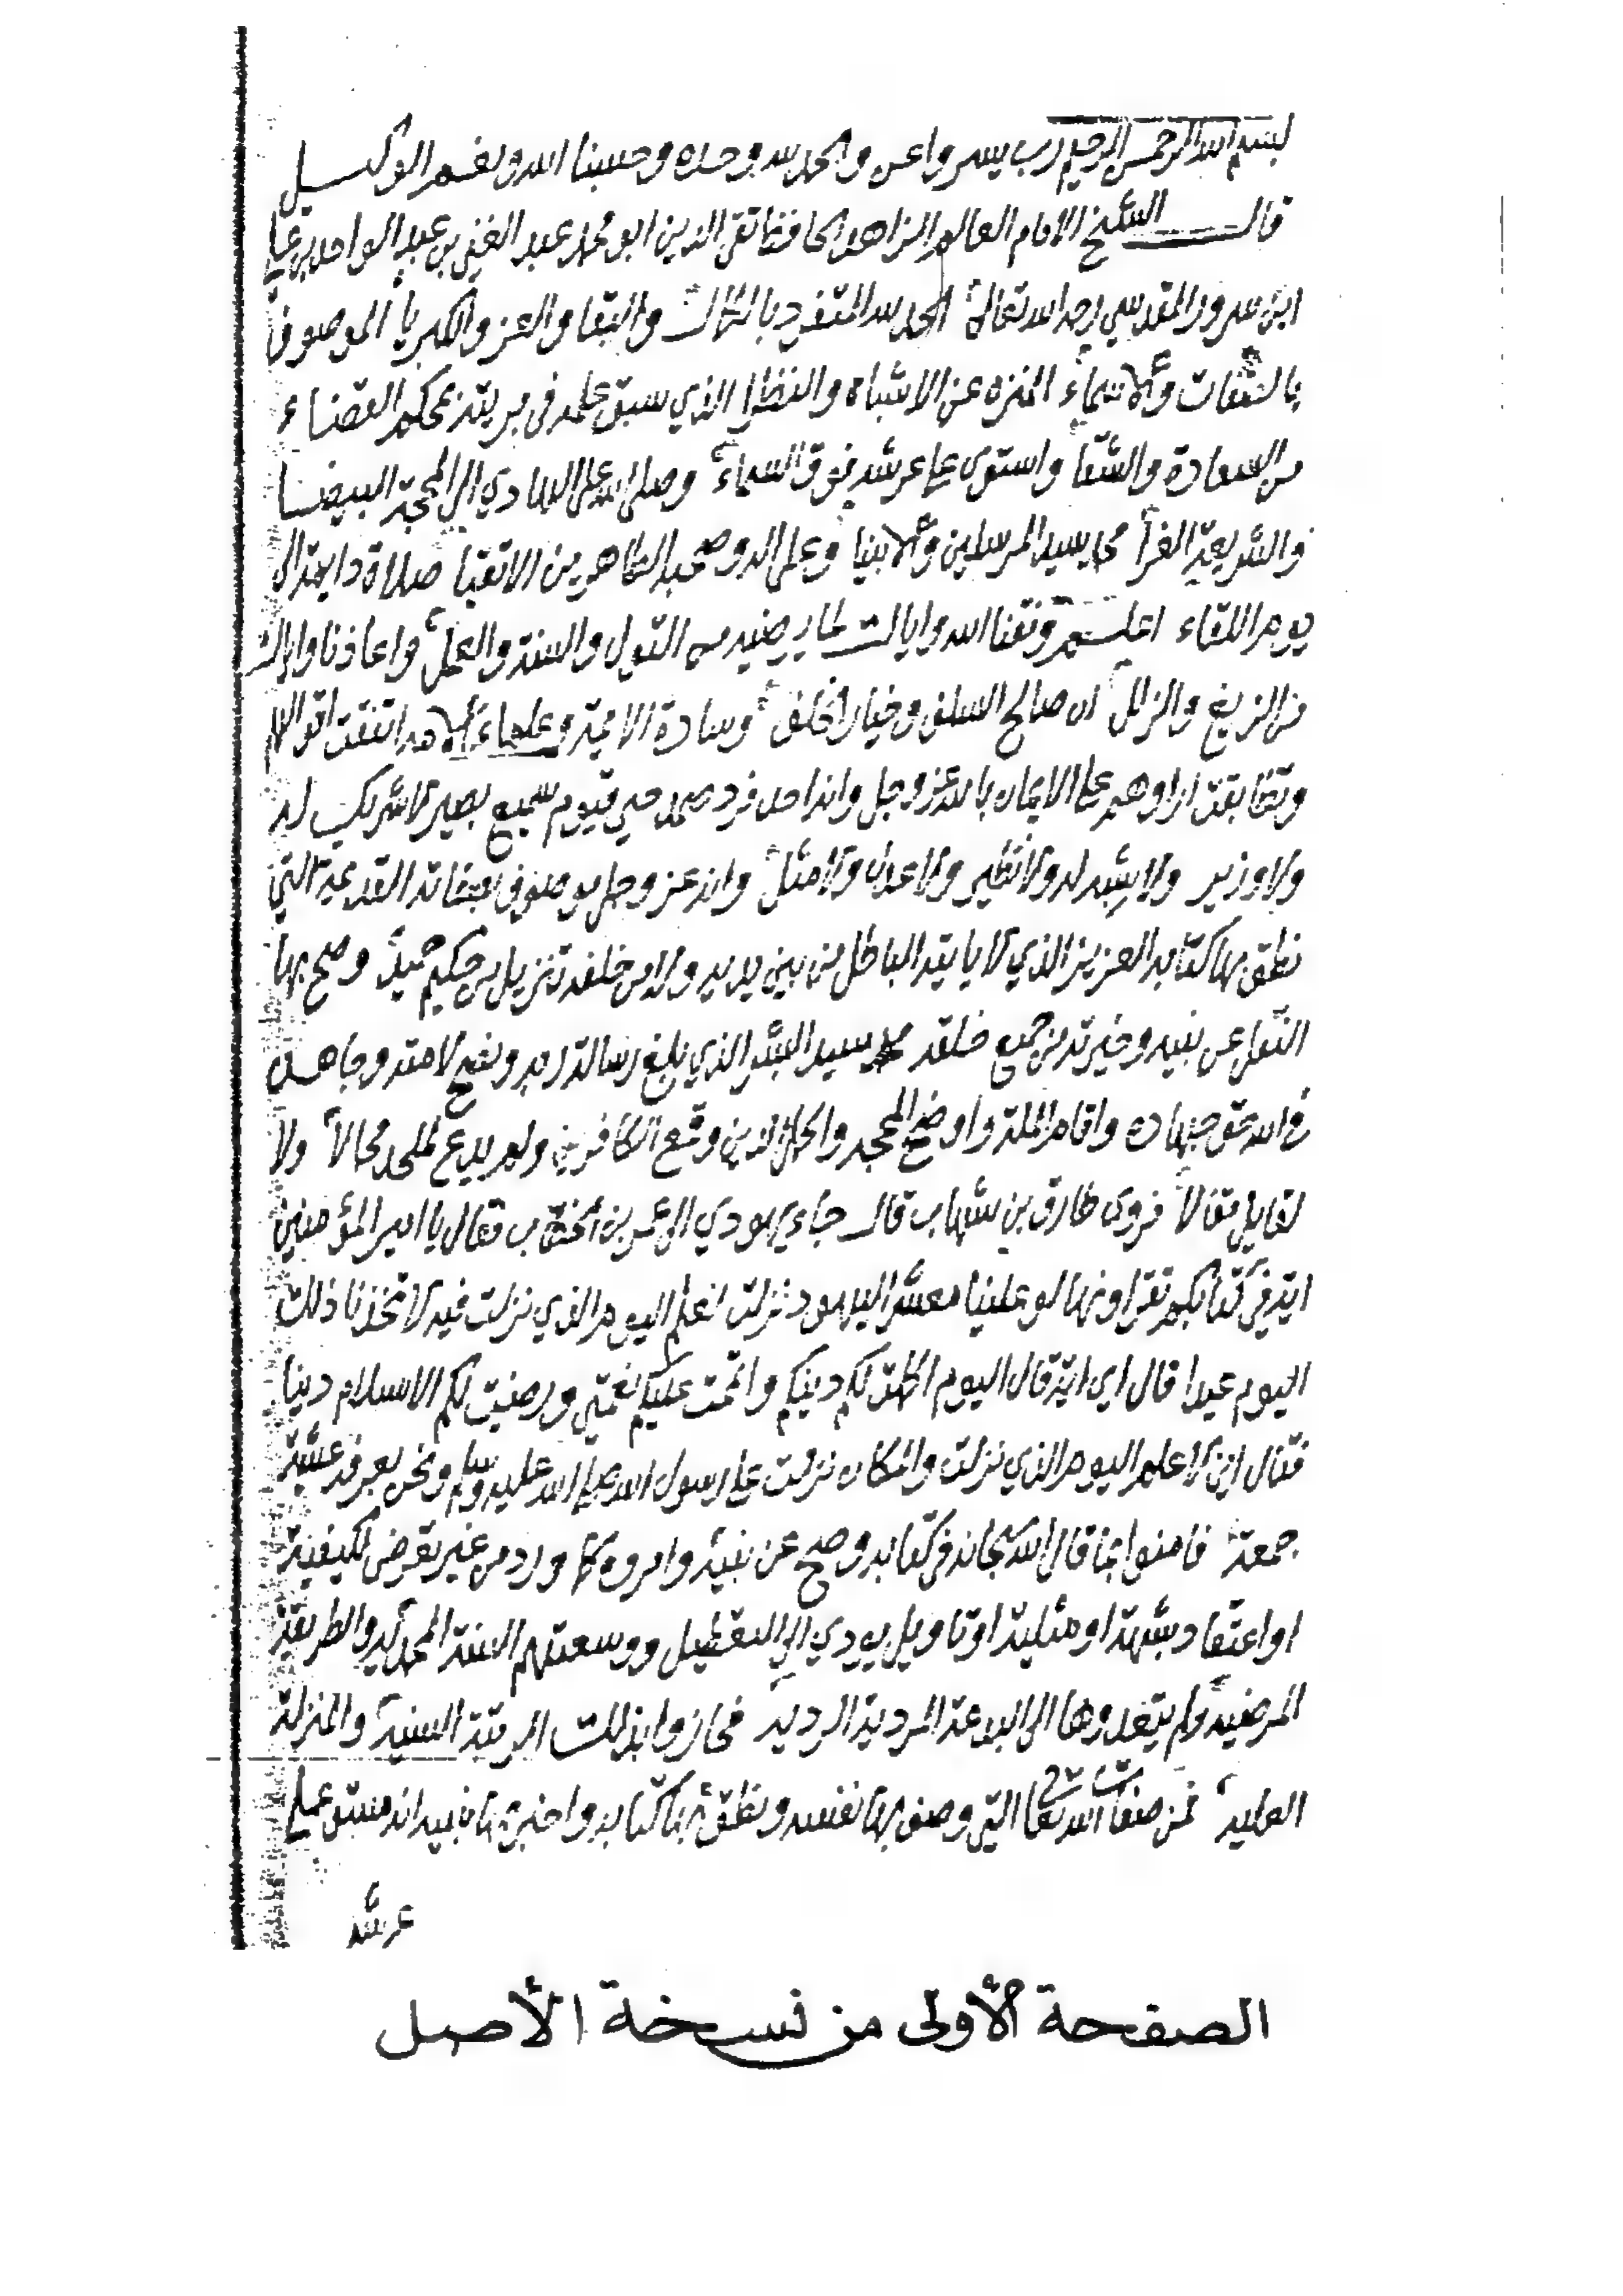 بسم الله الرحمن الرحيم رب يسر واعن والحمد لله وحده وحسبنا الله ونعم الوكيل
قال الشيخ الامام العالم الزاهد الحافظ تقي الدين ابو محمد عبد الغني بن عبد الواحد بن علي
ابن سرور المقدسي رحمه الله تعالى الحمد لله المتفرد بالكمال والبقا والعز والكبريا الموصوف
بالصفات والاسماء المنزه عن الاشباه والنظرا الذي سبق علمه في بريته بمحكم القضاء
من السعادة والشقا واستوى على عرشه فوق السماء وصلى الله على الهادي الى المحجة البيضا
والشريعة الغرا محمد سيد المرسلين والانبيا وعلى اله وصحبه الطاهرين الاتقيا صلاة دايمة الى
يوم اللقاء اعلم وفقنا الله واياك لما يرضيه من القول والسنة والعمل واعاذنا واياك
من الزيغ والزلل ان صالح السلف وخيار الخلف وسادة الايمة وعلماء الامه اتفقت اقوالهم
وتطابقت اراوهم على الايمان بالله عز وجل وانه احد فرد صمد حي قيوم سميع بصير لا شريك له
ولا وزير ولا شبيه له ولا نظير ولا عدل ولا مثل وانه عز وجل موصوف بصفاته القديمة التي
نطق بها كتابه العزيز الذي لا ياتيه الباطل من بين يديه ولا من خلفه تنزيل من حكيم حميد وصح بها
النقل عن نبيه وخيرته من جميع خلقه محمد سيد البشر الذي بلغ رسالة ربه ونصح لامته وجاهد
في الله حق جهاده واقام الملة واوضح المحجه واكمل الدين وقمع الكافرين ولم يدع لملحد مجالا ولا
لقايل مقالا فروى طارق بن شهاب قال جاء يهودي الى عمر بن الخطاب فقال يا امير المؤمنين
اية في كتابكم تقراونها لو علينا معشر اليهود نزلت نعلم اليوم الذي نزلت فيه لاتخذنا ذلك
اليوم عيدا قال اي اية قال اليوم اكملت لكم دينكم واتممت عليكم نعمتي ورضيت لكم الاسلام دينا
فقال اني لاعلم اليوم الذي نزلت والمكان نزلت على رسول الله صلى الله عليه وسلم ونحن بعرفه عشية
جمعة فامنوا بما قال الله سبحانه في كتابه وصح عن نبيه وامروه كما ورد من غير تعرض لكيفية
او اعتقاد شبهة او مثلية او تاويل يودي الى التعطيل ووسعتهم السنة المحمديه والطريقة
المرضيه ولم يتعدوها الى البدعة المردية الرديه فحازوا بذلك الرتبة السنية والمنزلة
العليه فمن صفات الله تعالى التي وصف بها نفسه ونطق بها كتابه واخبر بها نبيه انه مستو على
عرشه
الصفحة الأولى من نسخة الأصل